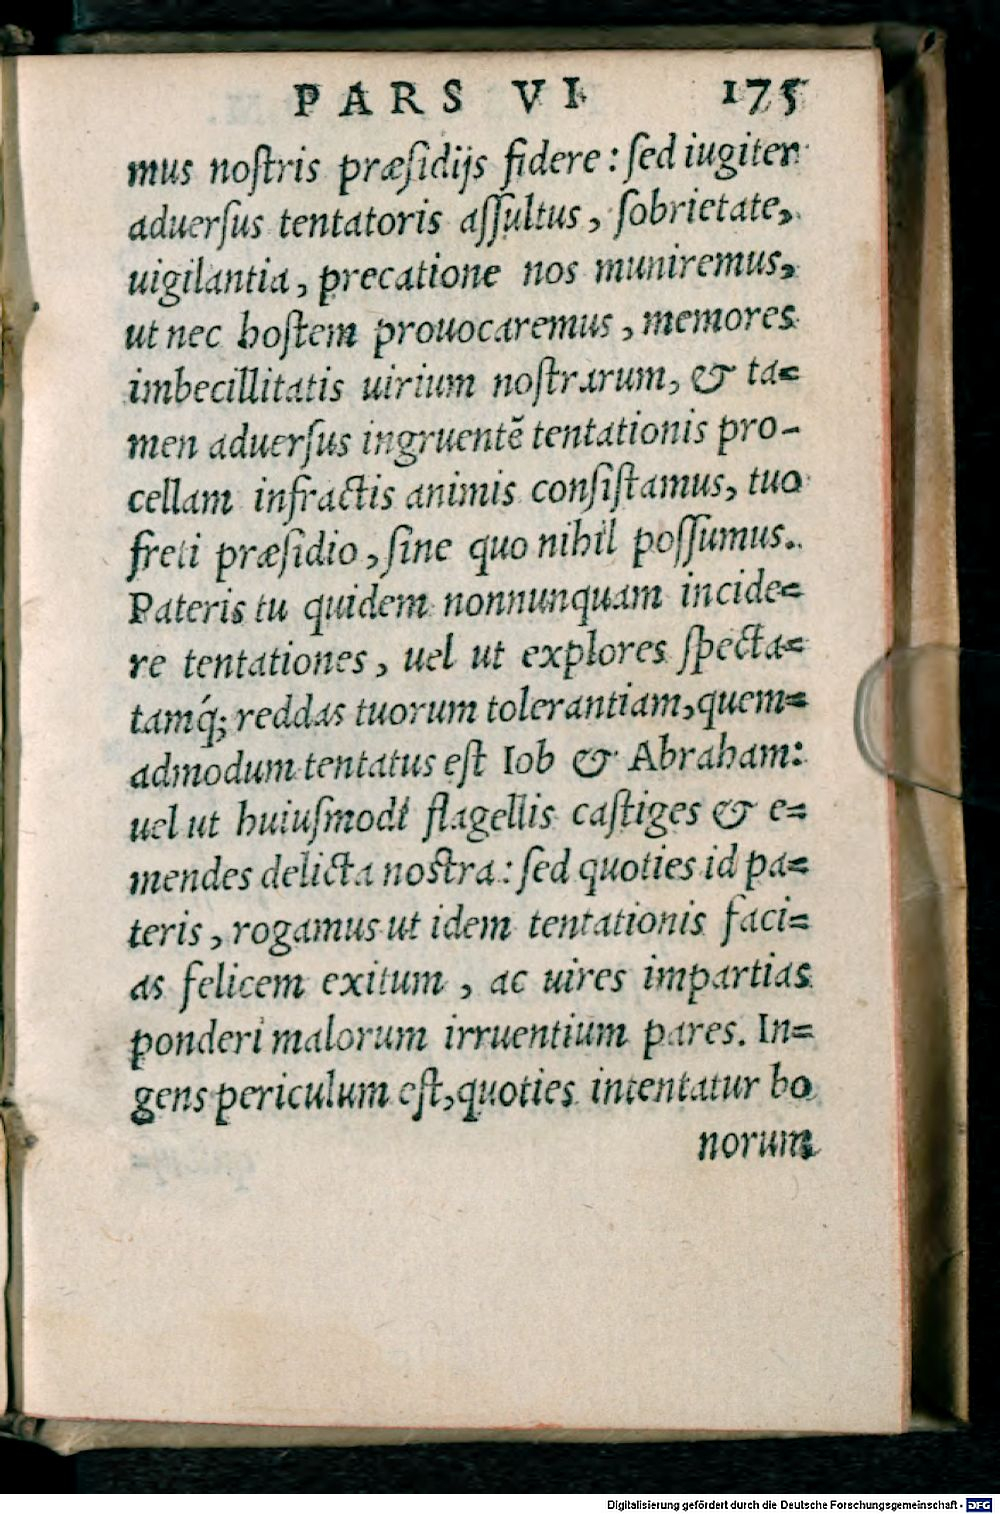 PARS VI 175
mus noſtris præſidijs fidere : ſed iugiter
aduerſus tentatoris aſſultus, ſobrietate,
uigilantia, precatione nos muniremus,
ut nec hoſtem prouocaremus, memores
imbecillitatis uirium noſtrarum, & ta=
men aduerſus ingruentē tentationis pro-
cellam infractis animis conſiſtamus, tuo
freti præſidio, ſine quo nihil poſſumus.
Pateris tu quidem nonnunquam incide=
re tentationes, uel ut explores ſpecta=
tamq́; reddas tuorum tolerantiam, quem=
admodum tentatus eſt Iob & Abraham:
uel ut huiuſmodi flagellis caſtiges & e=
mendes delicta noſtra : ſed quoties id pa=
teris, rogamus ut idem tentationis faci=
as felicem exitum, ac uires impartias
ponderi malorum irruentium pares. In=
gens periculum eſt, quoties intentatur bo
norum
Digitalisierung gefördert durch die Deutsche Forschungsgemeinschaft - DFG